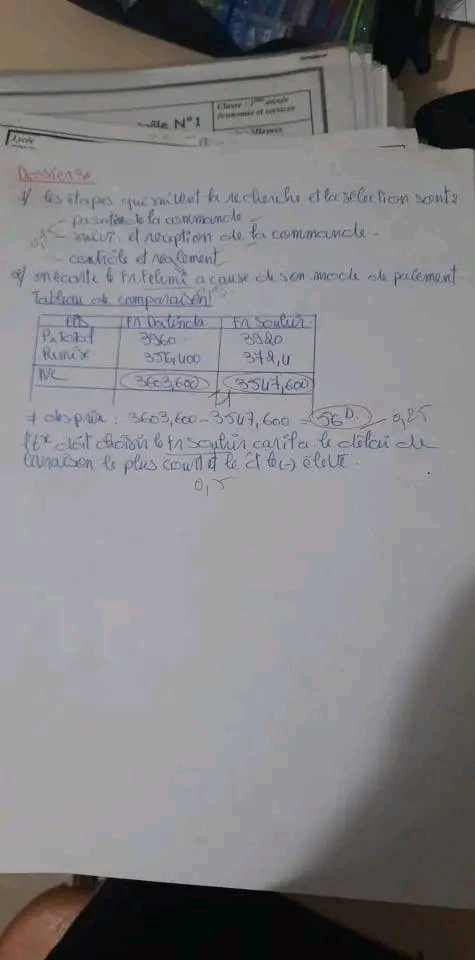 Classe : 2ème année
économie et services
N°1
Lycée
Dossier 3:
1/ les étapes qui suivent la recherche et la sélection sont:
- passation de la commande
0,75 - suivi et réception de la commande -
- contrôle et règlement
2/ on écarte le Fr. Felimi a cause de son mode de paiement.
Tableau de comparaison
Fr Soulur
P. Total 3960 3920
Remise 356,400 372,4
NC 3603,600 3547,600
≠ des prix : 3603,600 - 3547,600 = 56D 0,25
l'Ex doit choisir le Fr Soulur car il a le délai de
livraison le plus court et le le (-) élevé.
0,5